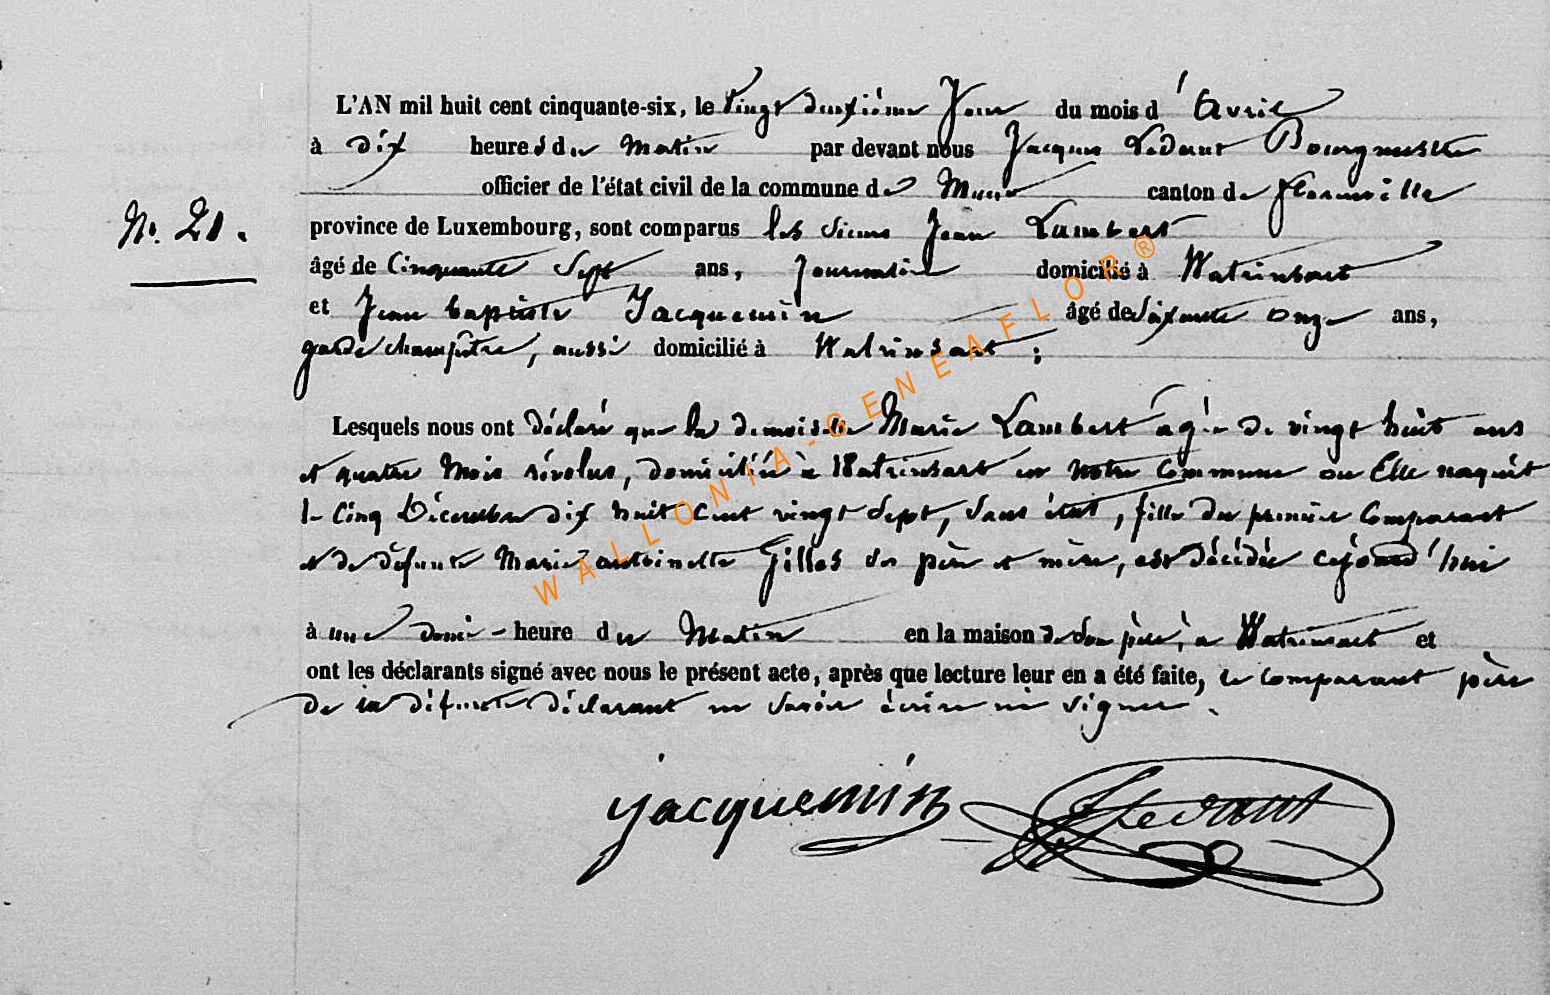 L'AN mil huit cent cinquante-six, le Vingt deuxième Jour du mois d'Avril
à dix heures du Matin par devant nous Jacques Ledant Bourgmestre
officier de l'état civil de la commune de Muno canton de florenville
N°. 21. province de Luxembourg, sont comparus les sieurs Jean Lambert
âgé de Cinquante Sept ans, Journalier domicilié à Watrinsart
et Jean baptiste Jacquemin âgé de Soixante onze ans,
garde champêtre, aussi domicilié à Watrinsart ;
Lesquels nous ont déclaré que la demoiselle Marie Lambert âgée de vingt huit ans
et quatre Mois révolus, domiciliée à Watrinsart en notre Commune ou Elle naquit
le Cinq Décembre dix huit Cent vingt Sept, Sans état, fille du premier Comparant
et de défunte Marie antoinette Gilles ses père et mère, est décédée cejourd'hui
à une demi-heure du Matin en la maison de Son père, à Watrinsart et
ont les déclarants signé avec nous le présent acte, après que lecture leur en a été faite, le Comparant père
de la défunte déclarant ne Savoir écrire ni Signer.
jacquemin JLedant
WALLONIA-GENEAFLOR®